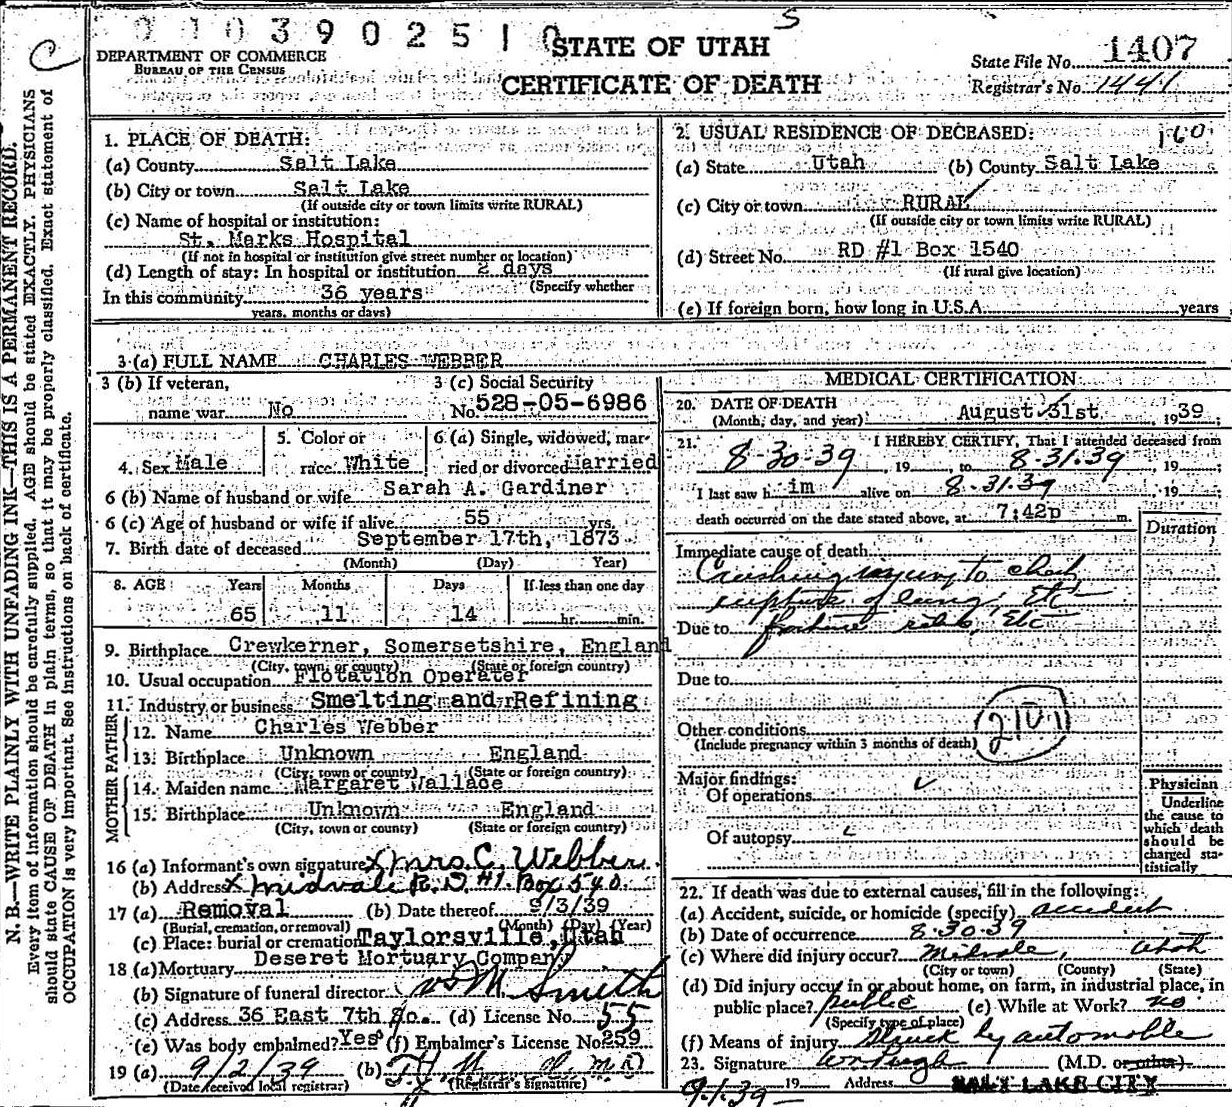 0 1 0 3 9 0 2 5 1 0
S
C
DEPARTMENT OF COMMERCE
BUREAU OF THE CENSUS
STATE OF UTAH
CERTIFICATE OF DEATH
State File No. 1407
Registrar's No. 1441
N. B.—WRITE PLAINLY WITH UNFADING INK—THIS IS A PERMANENT RECORD.
Every item of information should be carefully supplied. AGE should be stated EXACTLY. PHYSICIANS
should state CAUSE OF DEATH in plain terms, so that it may be properly classified. Exact statement of
OCCUPATION is very important. See instructions on back of certificate.
1. PLACE OF DEATH:
(a) County Salt Lake
(b) City or town Salt Lake
(If outside city or town limits write RURAL)
(c) Name of hospital or institution:
St. Marks Hospital
(If not in hospital or institution give street number or location)
(d) Length of stay: In hospital or institution 2 days
(Specify whether
In this community 36 years
years, months or days)
2. USUAL RESIDENCE OF DECEASED:
(a) State Utah (b) County Salt Lake
(c) City or town RURAL
(If outside city or town limits write RURAL)
(d) Street No. RD #1 Box 1540
(If rural give location)
(e) If foreign born, how long in U.S.A. years
3 (a) FULL NAME CHARLES WEBBER
3 (b) If veteran,
name war No
3 (c) Social Security
No. 528-05-6986
4. Sex Male
5. Color or
race White
6 (a) Single, widowed, mar-
ried or divorced Married
6 (b) Name of husband or wife Sarah A. Gardiner
6 (c) Age of husband or wife if alive 55 yrs.
7. Birth date of deceased September 17th, 1873
(Month) (Day) Year)
8. AGE Years Months Days If less than one day
65 11 14 hr. min.
9. Birthplace Crewkerner, Somersetshire, England
(City, town, or county) (State or foreign country)
10. Usual occupation Flotation Operater
11. Industry or business Smelting and Refining
FATHER
12. Name Charles Webber
13. Birthplace Unknown England
(City, town or county) (State or foreign country)
MOTHER
14. Maiden name Margaret Wallace
15. Birthplace Unknown England
(City, town or county) (State or foreign country)
16 (a) Informant's own signature x Mrs. C. Webber.
(b) Address x Midvale R.D. #1. Box 540.
17 (a) Removal (b) Date thereof 9/3/39
(Burial, cremation, or removal) (Month) (Day) (Year)
(c) Place: burial or cremation Taylorsville, Utah
18 (a) Mortuary Deseret Mortuary Company
(b) Signature of funeral director Smith
(c) Address 36 East 7th So. (d) License No. 55
(e) Was body embalmed? Yes (f) Embalmer's License No. 259
19 (a) 9/2/39 (b)
(Date received local registrar) (Registrar's signature)
MEDICAL CERTIFICATION
20. DATE OF DEATH
(Month, day, and year) August 31st, 1939
21. I HEREBY CERTIFY, That I attended deceased from
8-30-39, 19 , to 8-31-39, 19
I last saw him alive on 8-31-39, 19
death occurred on the date stated above, at 7:42p m.
Duration
Immediate cause of death
Crushing injury to chest
rupture of lung, Etc
Due to fracture ribs, Etc
Due to
Other conditions
(Include pregnancy within 3 months of death)
2101
Major findings:
Of operations
Of autopsy
Physician
Underline
the cause to
which death
should be
charged sta-
tistically
22. If death was due to external causes, fill in the following:
(a) Accident, suicide, or homicide (specify) accident
(b) Date of occurrence 8-30-39
(c) Where did injury occur? Midvale, Utah
(City or town) (County) (State)
(d) Did injury occur in or about home, on farm, in industrial place, in
public place? public (e) While at Work? no
(Specify type of place)
(f) Means of injury Struck by automobile
23. Signature Wm Pugh (M.D. or other)
9-1-39 19 Address SALT LAKE CITY